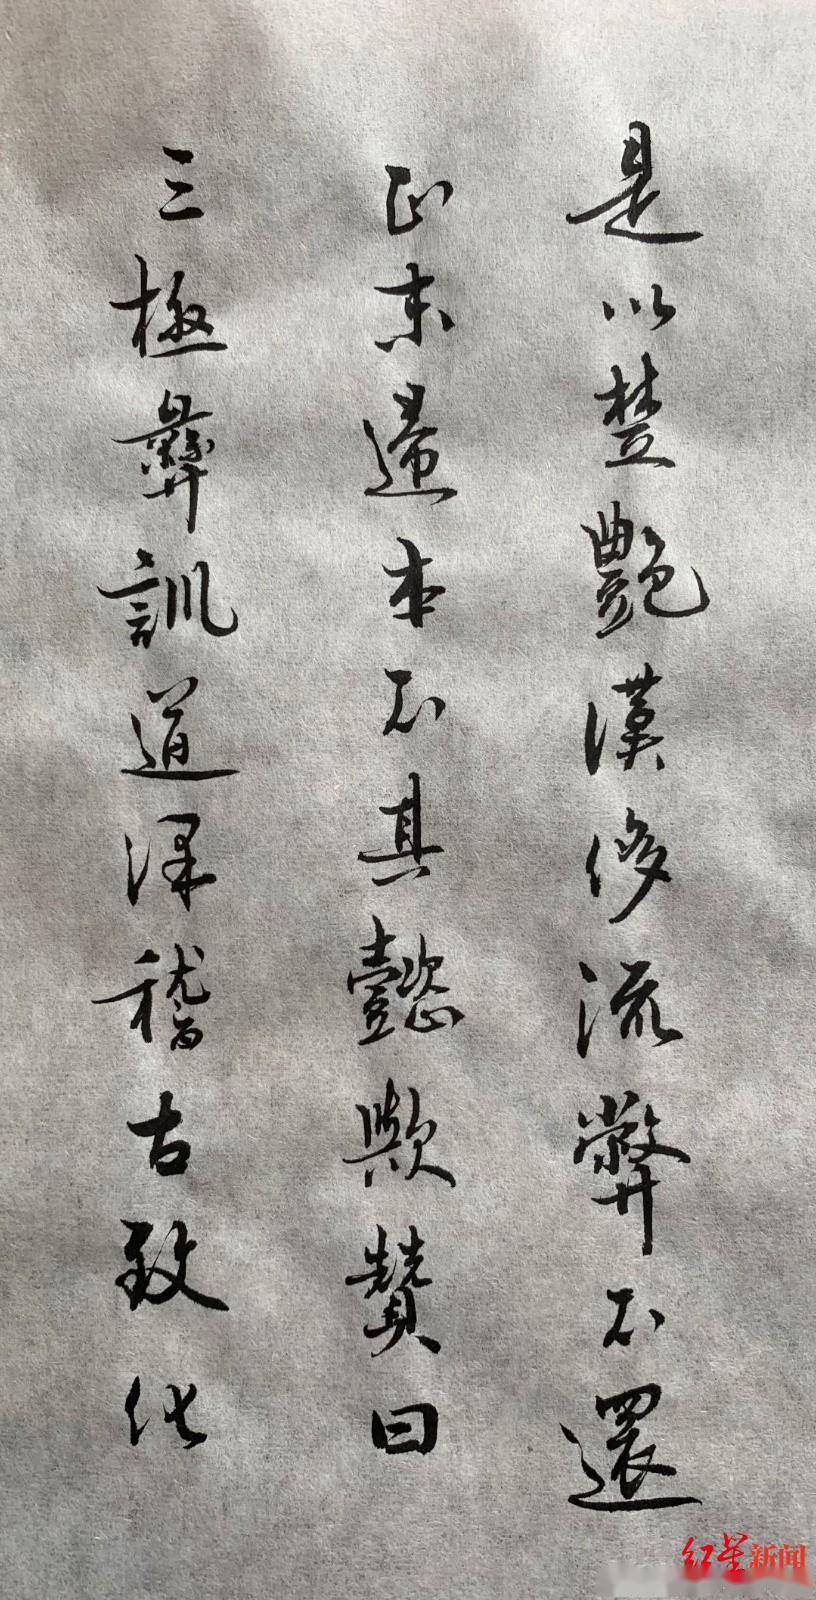 是以楚艷漢侈流弊不還
正末歸本不其懿歟贊曰
三極彝訓道深稽古致化
红星新闻